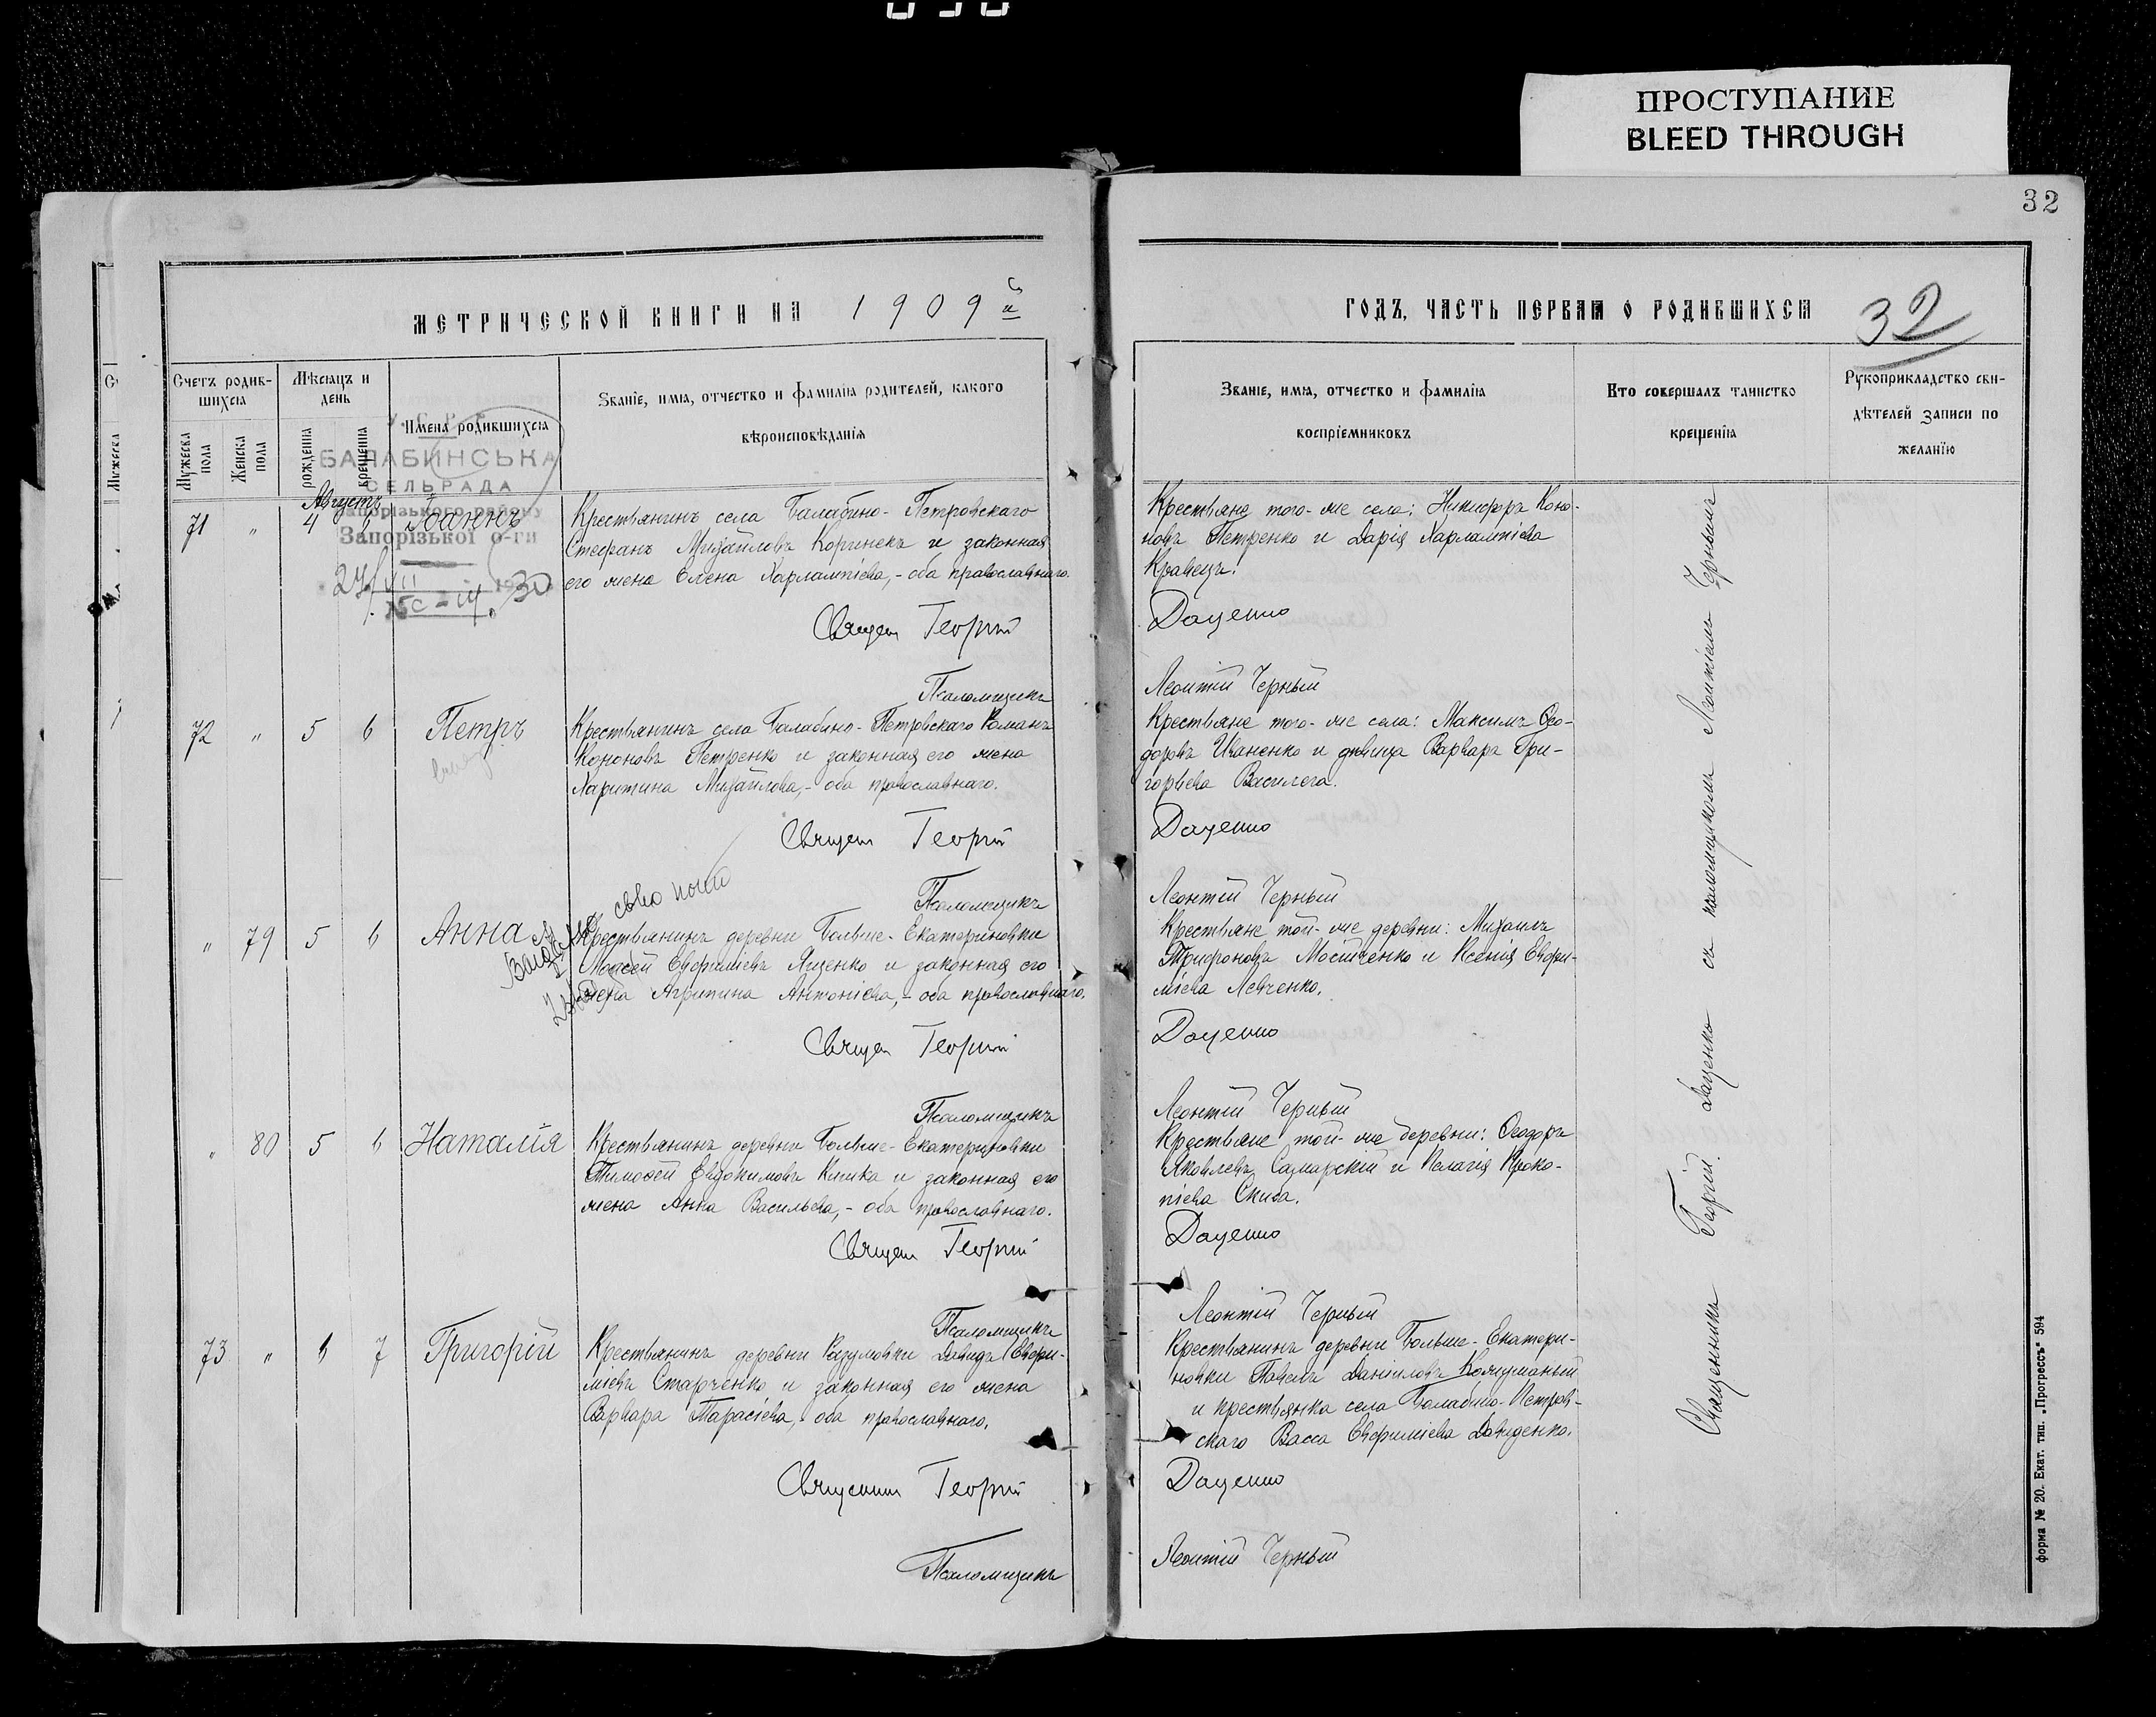 ПРОСТУПАНИЕ
BLEED THROUGH
32
МЕТРИЧЕСКОЙ КНИГИ НА 1909й
Счетъ родив-
шихся
Мѣсяцъ и
день
Имена родившихся
Званіе, имя, отчество и фамилія родителей, какого
вѣроисповѣданія
Мужеска
пола
Женска
пола
рожденія
крещенія
БАЛАБИНСЬКА
СЕЛЬРАДА
Запорізького району
Запорізької о-ги
Августъ
71 " 4 6 Іоаннъ
Крестьянинъ села Балабино-Петровскаго
Стефанъ Михайловъ Коринекъ и законная
его жена Елена Харлампіева,- оба православнаго.
Священ Георгій
Псаломщикъ
72 " 5 6 Петръ
Крестьянинъ села Балабино-Петровскаго Романъ
Кононовъ Петренко и законная его жена
Харитина Михайлова,- оба православнаго.
Священ Георгій
Псаломщикъ
" 79 5 6 Анна
Крестьянинъ деревни Больше-Екатериновки
Моѵсей Евфиміевъ Яценко и законная его
жена Агрипина Антоніева,- оба православнаго.
Священ Георгій
Псаломщикъ
" 80 5 6 Наталія
Крестьянинъ деревни Больше-Екатериновки
Тимоѳей Евдокимовъ Кишка и законная его
жена Анна Васильева,- оба православнаго.
Священ Георгій
Псаломщикъ
73 " 6 7 Григорій
Крестьянинъ деревни Разумовки Давидъ Евфи-
міевъ Старченко и законная его жена
Варвара Тарасіева,- оба православнаго.
Священник Георгій
Псаломщикъ
ГОДЪ, ЧАСТЬ ПЕРВАЯ О РОДИВШИХСЯ
32
Званіе, имя, отчество и фамилія
воспріемниковъ
Кто совершалъ таинство
крещенія
Рукоприкладство сви-
дѣтелей записи по
желанію
Крестьяне того-же села: Никифоръ Коно-
новъ Петренко и Дарія Харлампіева
Кравецъ.
Даценко
Леонтій Черный
Крестьяне того-же села: Максимъ Ѳео-
доровъ Иваненко и дѣвица Варвара Гри-
горьева Василега.
Даценко
Леонтій Черный
Крестьяне той-же деревни: Михаилъ
Трифоновъ Мосійченко и Ксенія Евфи-
міева Левченко.
Даценко
Леонтій Черный
Крестьяне той-же деревни: Ѳеодоръ
Яковлевъ Самарскій и Пелагія Проко-
піева Скиба.
Даценко
Леонтій Черный
Крестьянинъ деревни Больше-Екатери-
новки Павелъ Даніиловъ
и крестьянка села Балабино-Петров-
скаго Васса Евфиміева Давиденко.
Даценко
Леонтій Черный
Священникъ Георгій Даценко съ псаломщикомъ Леонтіемъ Чернымъ
форма № 20. Екат. тип. „Прогрессъ“ 594